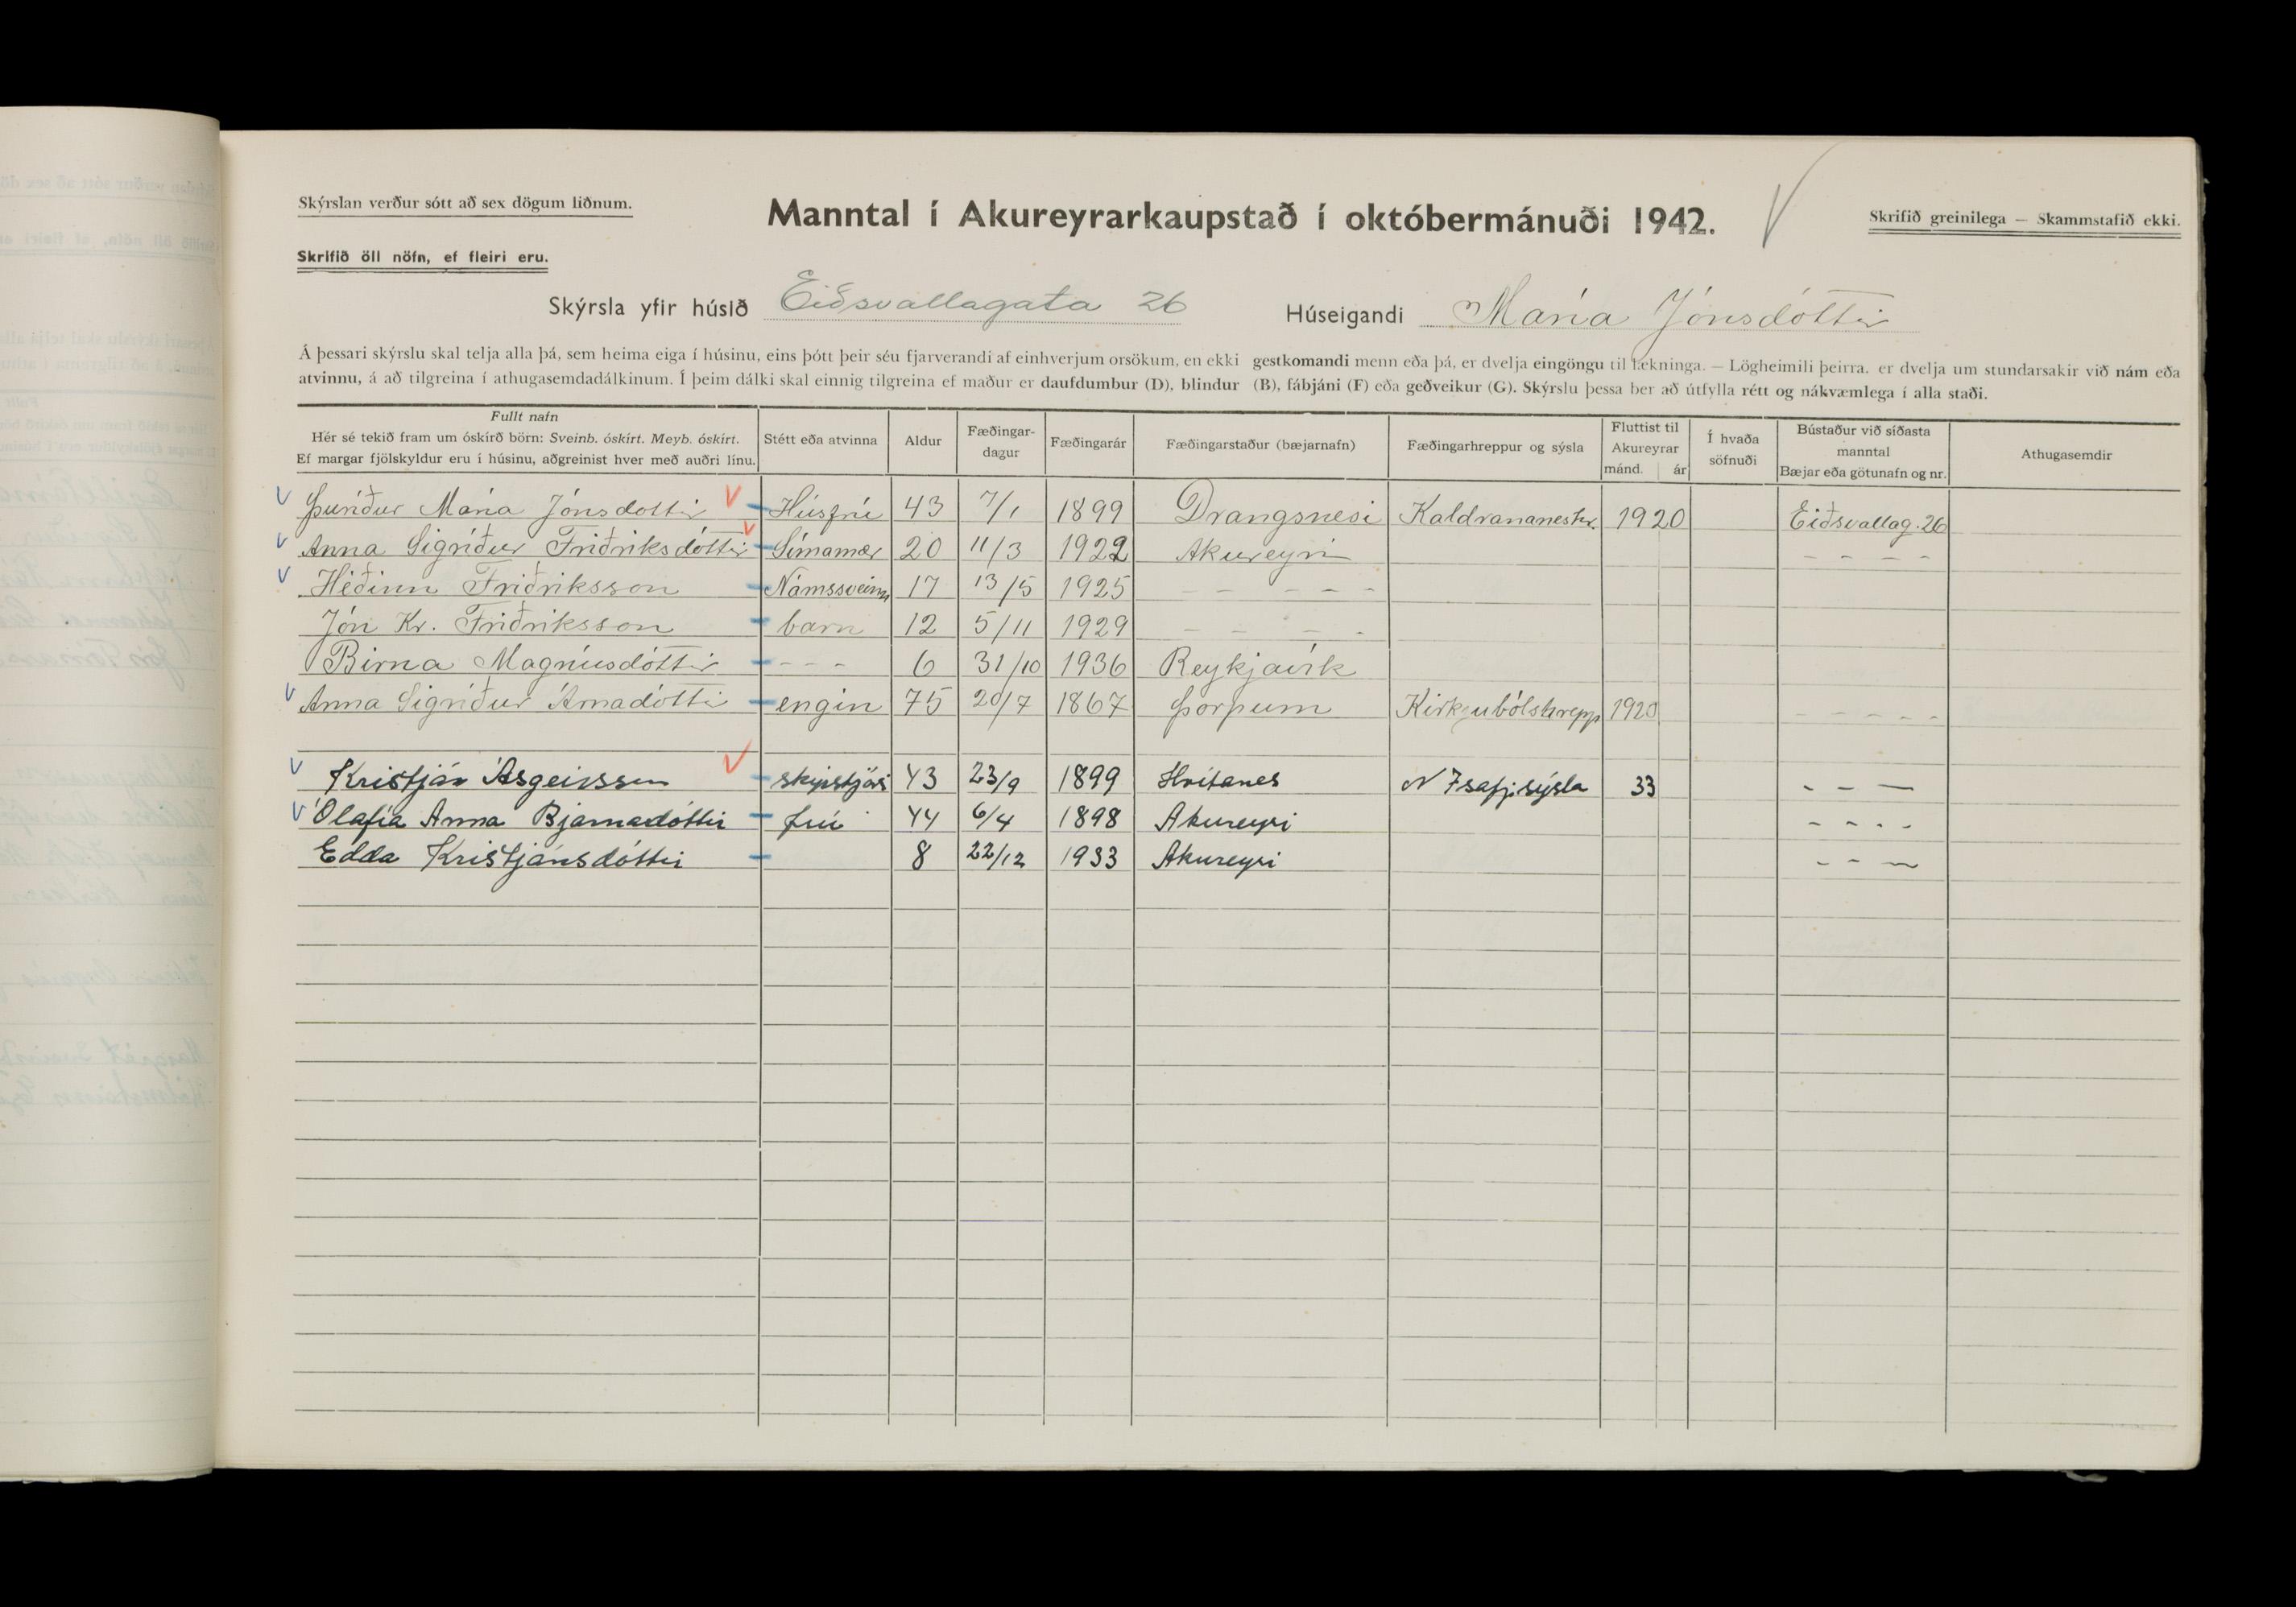 Skýrslan verður sótt að sex dögum liðnum.
Manntal í Akureyrarkaupstað í októbermánuði 1942.
Skrifið greinilega — Skammstafið ekki.
Skrifið öll nöfn, ef fleiri eru.
Skýrsla yfir húsið Eiðsvallagata 26 Húseigandi María Jónsdóttir
Á þessari skýrslu skal telja alla þá, sem heima eiga í húsinu, eins þótt þeir séu fjarverandi af einhverjum orsökum, en ekki gestkomandi menn eða þá, er dvelja eingöngu til lækninga. — Lögheimili þeirra. er dvelja um stundarsakir við nám eða
atvinnu, á að tilgreina í athugasemdadálkinum. Í þeim dálki skal einnig tilgreina ef maður er daufdumbur (D), blindur (B), fábjáni (F) eða geðveikur (G). Skýrslu þessa ber að útfylla rétt og nákvæmlega í alla staði.
Fullt nafn
Hér sé tekið fram um óskírð börn: Sveinb. óskírt. Meyb. óskírt.
Ef margar fjölskyldur eru í húsinu, aðgreinist hver með auðri línu.
Stétt eða atvinna
Aldur
Fæðingar-
dagur
Fæðingarár
Fæðingarstaður (bæjarnafn)
Fæðingarhreppur og sýsla
Fluttist til
Akureyrar
mánd. ár
Í hvaða
söfnuði
Bústaður við síðasta
manntal
Bæjar eða götunafn og nr.
Athugasemdir
Þuríður María Jónsdottir Húsfrú 43 7/1 1899 Drangsnesi Kaldrananeshr. 1920 Eiðsvallag. 26
Anna Sigríður Friðriksdóttir Símamær 20 11/3 1922 Akureyri - - - -
Héðinn Friðriksson Námssveinn 17 13/5 1925 - - - - -
Jón Kr. Friðriksson barn 12 5/11 1929 - - - -
Birna Magnúsdóttir - - - 6 31/10 1936 Reykjavík
Anna Sigríður Árnadóttir engin 75 20/7 1867 Þorpum Kirkjubólshrepp 1920 - - - - -
Kristján Ásgeirsson skipstjóri 43 23/9 1899 Hvítanes N Ísafj.sýsla 33 - - -
Ólafía Anna Bjarnadóttir frú 44 6/4 1898 Akureyri - - - -
Edda Kristjánsdóttir 8 22/12 1933 Akureyri - - -